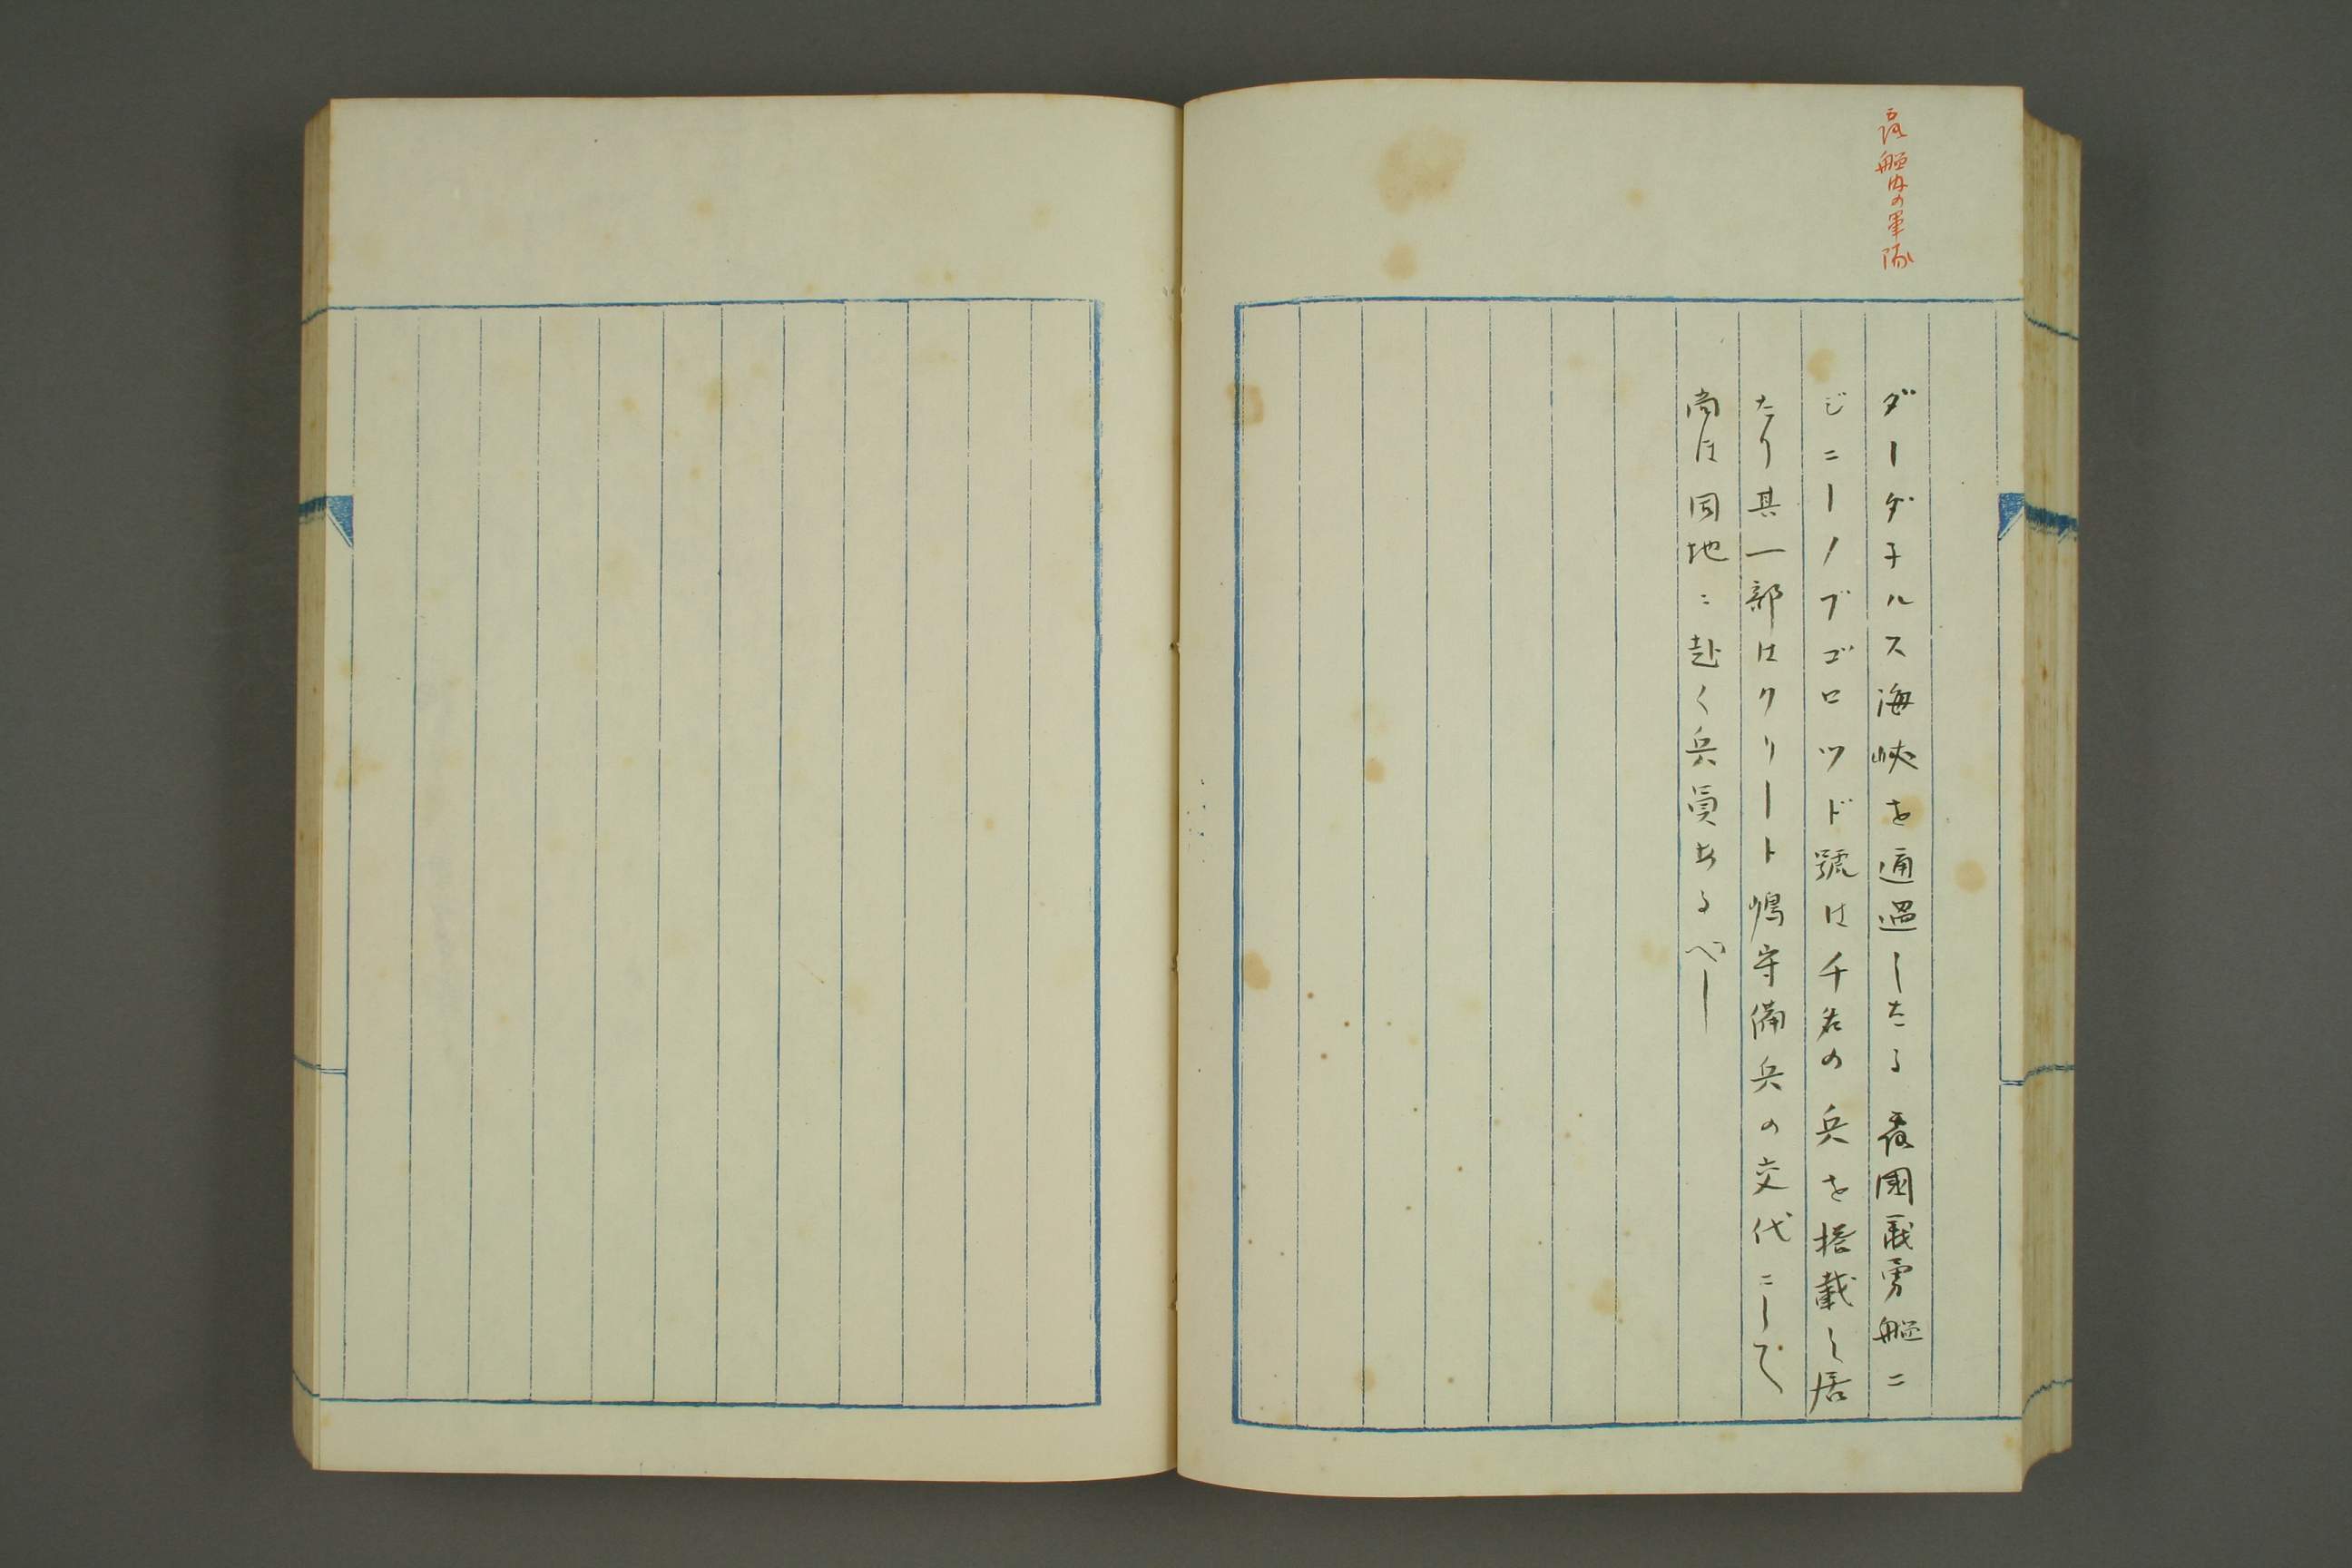 露艦内の軍隊
ダーダネルス海峡を通過したる露國義勇艦ニ
ジニーノブゴロツド號は千名の兵を搭載し居
たり其一部はクリート嶋守備兵の交代にして
尚ほ同地に赴く兵員あるべし